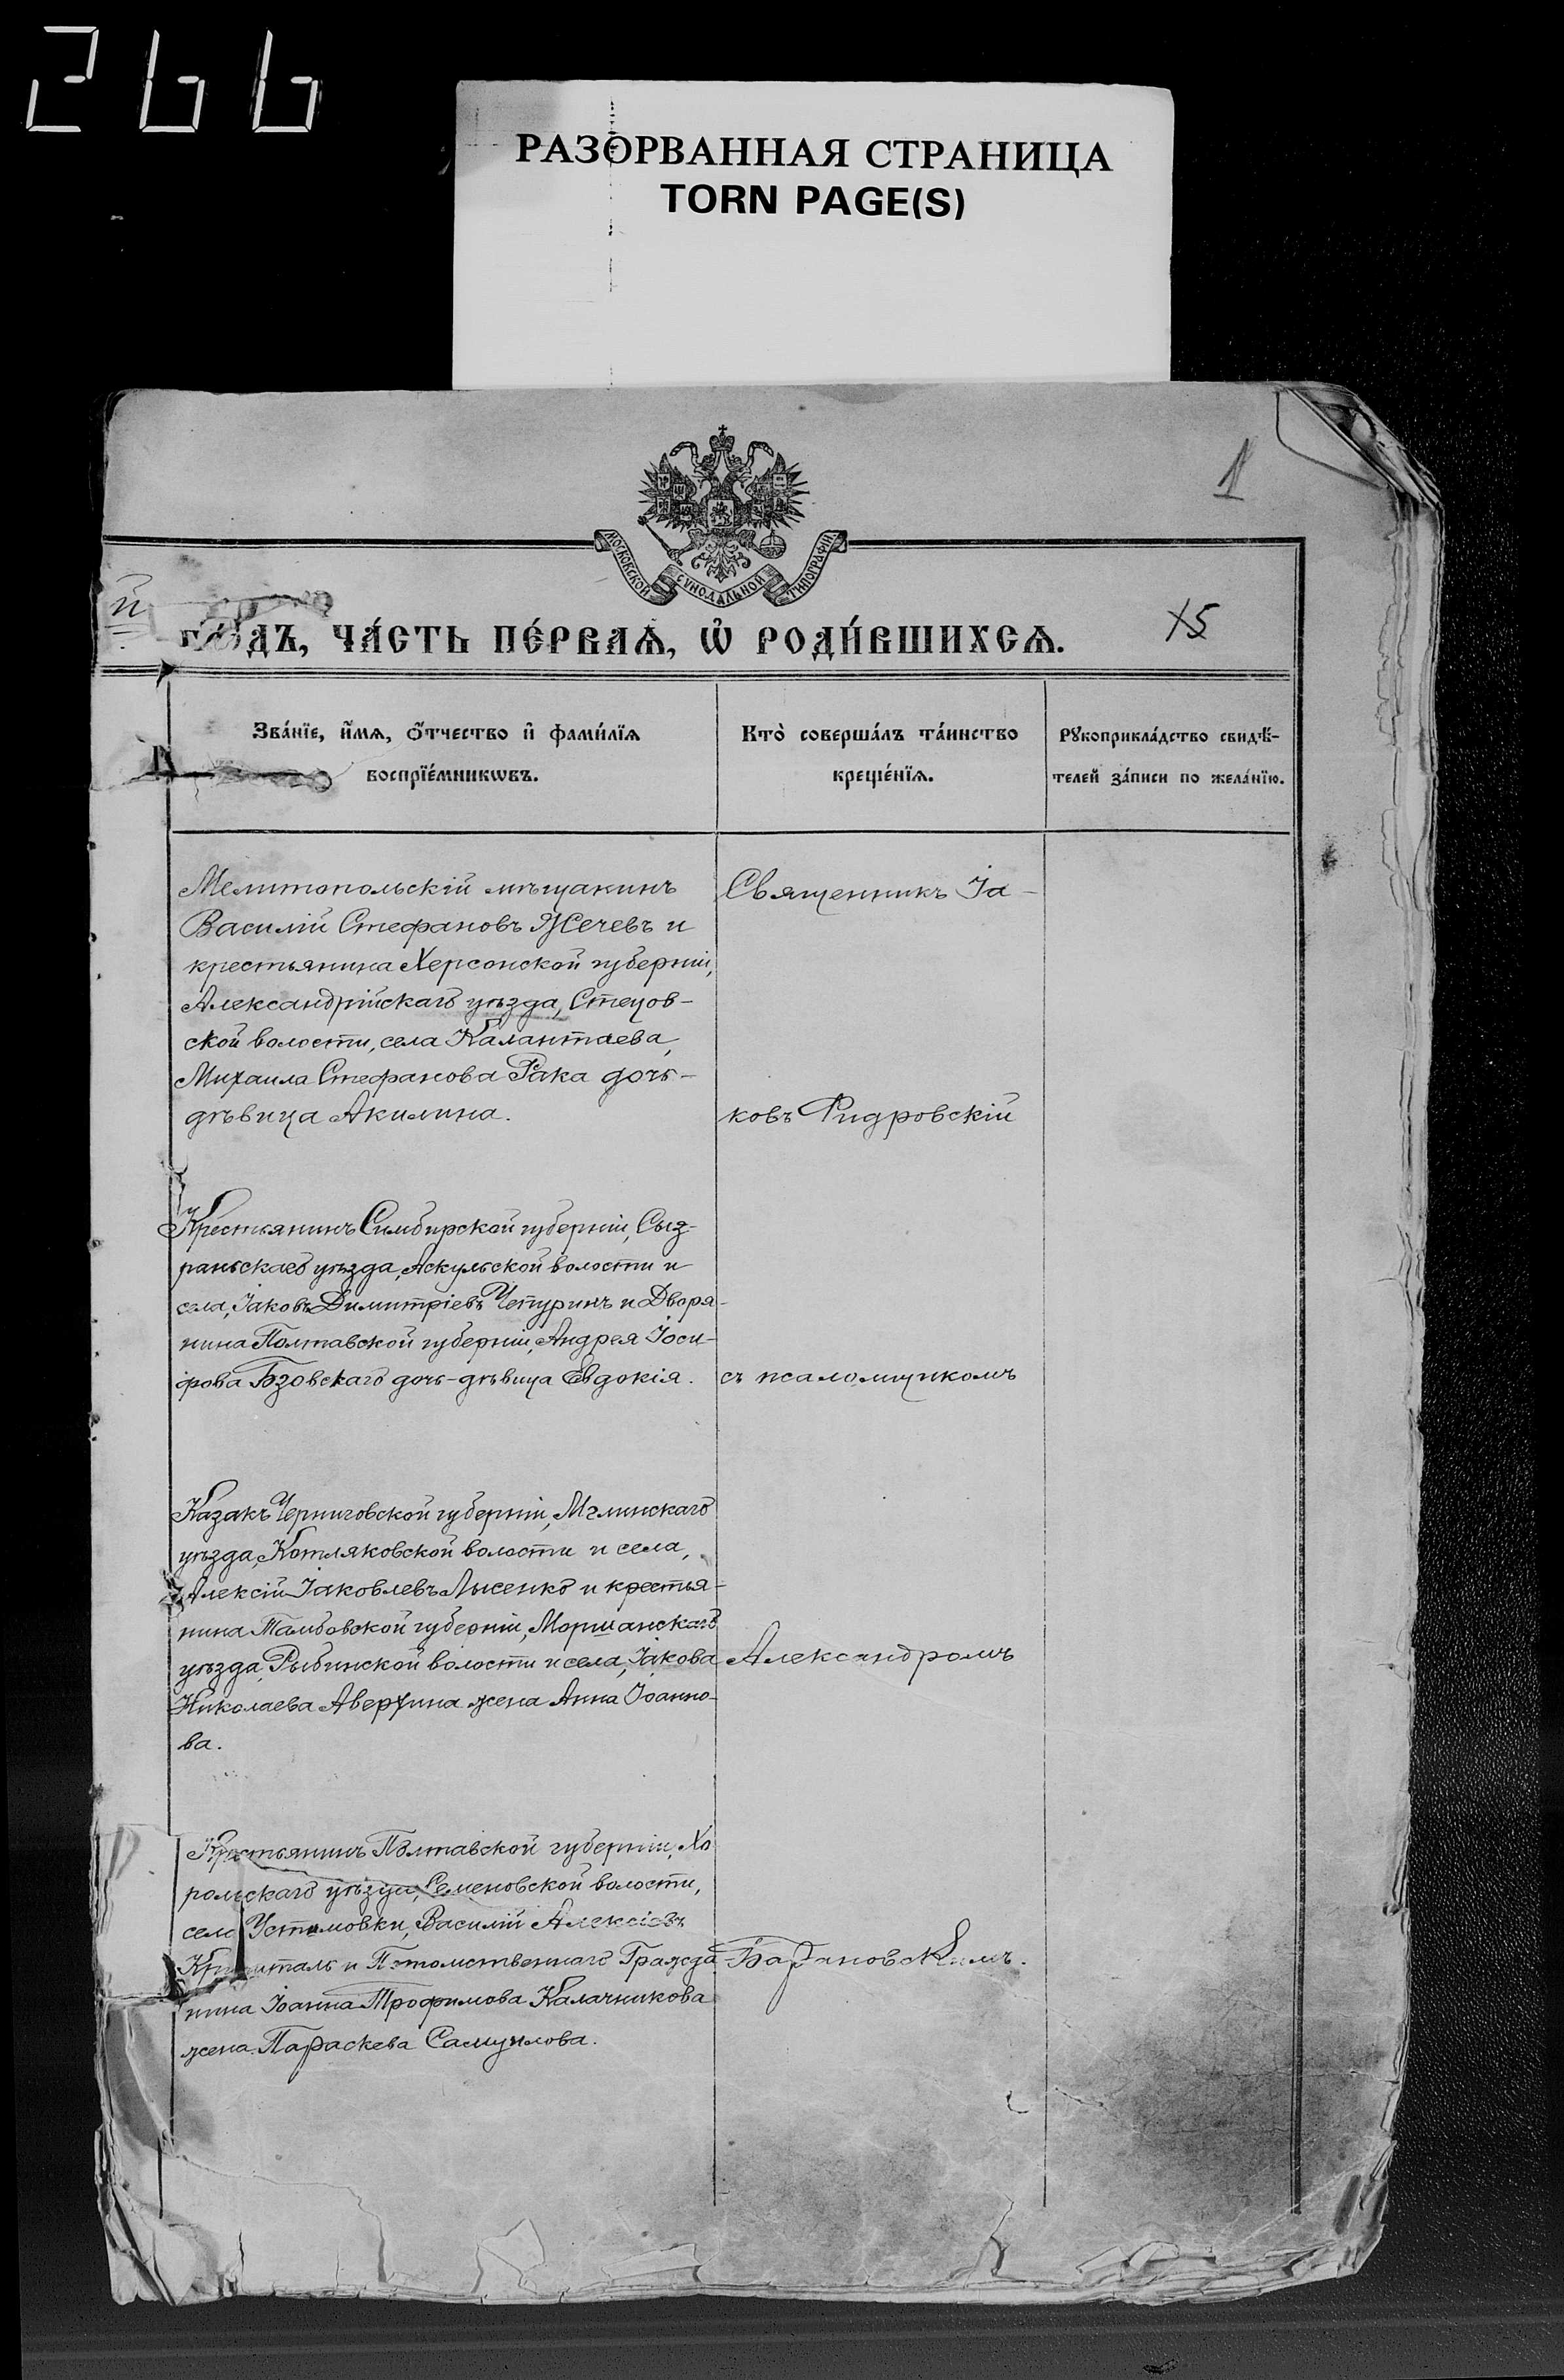 266
РАЗОРВАННАЯ СТРАНИЦА
TORN PAGE(S)
1
МОСКОВСКОЙ СѴНОДАЛЬНОЙ ТИПОГРАФІИ
й
15
го́дъ, ча́сть пе́рваѧ, ѡ҆ роди́вшихсѧ.
Зва́нїе, и҆́мѧ, ѻ҆́тчество и҆ фами́лїѧ
воспрїе́мникѡвъ.
Кто̀ соверша́лъ та́инство
креще́нїѧ.
Рꙋкоприкла́дство свидѣ́-
телей за́писи по жела́нїю.
Мелитопольскій мѣщанинъ
Василій Стефановъ Жечевъ и
крестьянина Херсонской губерніи,
Александрійскаго уѣзда, Стецов-
ской волости, села Калантаева,
Михаила Стефанова Рака дочь-
дѣвица Акилина.
Священникъ Іа-
ковъ Фидровскій
Крестьянинъ Симбирской губерніи, Сыз-
ранскаго уѣзда, Аскульской волости и
села, Іаковъ Димитріевъ Чепуринъ и Дворя-
нина Полтавской губерніи, Андрея Іоси-
фова Бзовскаго дочь-дѣвица Евдокія.
съ псаломщикомъ
Казакъ Черниговской губерніи, Мглинскаго
уѣзда, Котляковской волости и села,
Алексій Іаковлевъ Лысенко и крестья-
нина Тамбовской губерніи, Моршанскаго
уѣзда, Рыбинской волости и села, Іакова
Николаева Аверхина жена Анна Іоанно-
ва.
Александромъ
Крестьянинъ Полтавской губерніи, Хо
рольскаго уѣзда, Семеновской волости,
села Устимовки, Василій Алексіевъ
и Потомственнаго Гражда
нина Іоанна Трофимова Калачникова
жена Параскева Самуилова.
Барановскимъ.